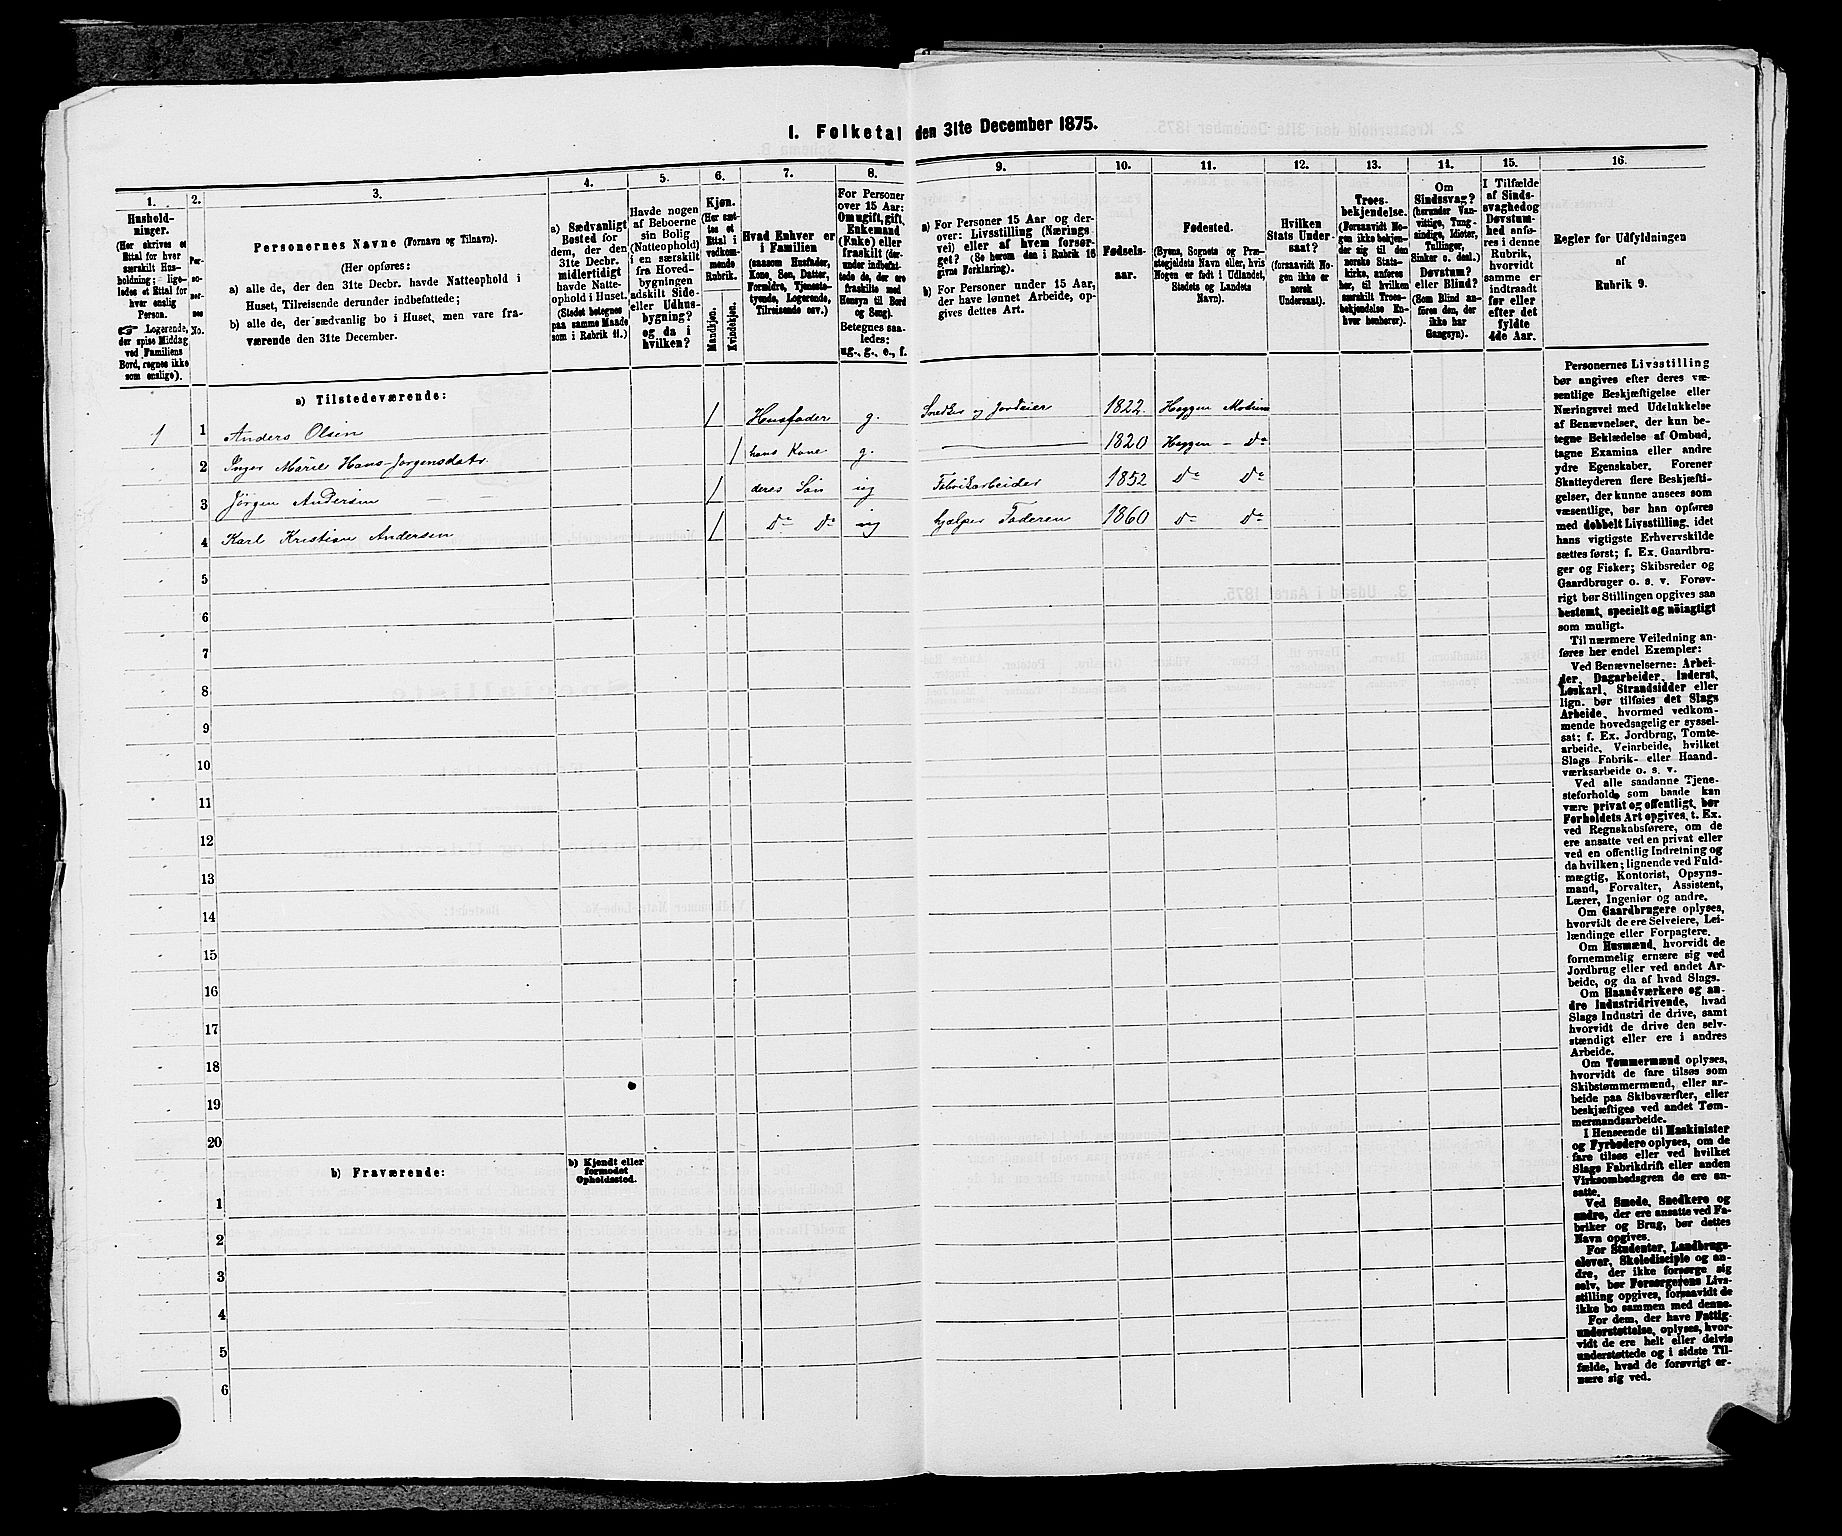 I. Folketal den 31te December 1875.
1. 2. 3. 4. 5. 6. 7. 8. 9. 10. 11. 12. 13. 14. 15. 16.
Hushold-
ninger.
(Her skrives et
Ettal for hver
særskilt Hus-
holdning; lige-
ledes et Ettal for
hver enslig
Person.
☞ Logerende,
der spise Middag
ved Familiens
Bord, regnes ikke
som enslige).
Per-
so-
ner-
nes
No.
Personernes Navne (Fornavn og Tilnavn).
(Her opføres:
a) alle de, der den 31te Decbr. havde Natteophold i
Huset, Tilreisende derunder indbefattede;
b) alle de, der sædvanlig bo i Huset, men vare fra-
værende den 31te December.
a) Sædvanligt
Bosted for
dem, der den
31te Decbr.
midlertidigt
havde Natte-
ophold i Huset.
(Stedet betegnes
paa samme Maade
som i Rubrik 11.)
Havde nogen
af Beboerne
sin Bolig
(Natteophold)
i en særskilt
fra Hoved-
bygningen
adskilt Side-
eller Udhus-
bygning?
og da i
hvilken?
Kjøn.
(Her sæt-
tes et
Ettal i
vedkom-
mende
Rubrik.
Mandkjøn.
Kvindekjøn.
Hvad Enhver er
i Familien
(saasom Husfader,
Kone, Søn, Datter,
Forældre, Tjeneste-
tyende, Logerende,
Tilreisende osv.)
For Personer
over 15 Aar:
Om ugift, gift,
Enkemand
(Enke) eller
fraskilt (der-
under indbefat-
tede de, der ere
fraskilte med
Hensyn til Bord
og Seng).
Betegnes saa-
ledes:
ug., g., e., f.
a) For Personer 15 Aar og der-
over: Livsstilling (Nærings-
vei) eller af hvem forsør-
get? (Se herom den i Rubrik 16
givne Forklaring).
b) For Personer under 15 Aar,
der have lønnet Arbeide, op-
gives dettes Art.
Fødsels-
aar.
Fødested.
(Byens, Sognets og Præ-
stegjeldets Navn eller, hvis
Nogen er født i Udlandet,
Stedets og Landets
Navn).
Hvilken
Stats Under-
saat?
(forsaavidt No-
gen ikke er
norsk
Undersaat).
Troes-
bekjendelse.
(Forsaavidt No-
gen ikke bekjen-
der sig til den
norske Stats-
kirke, anføres
her, til hvilken
særskilt Troes-
bekjendelse En-
hver henhører).
Om
Sindssvag?
(herunder Van-
vittige, Tung-
sindige, Idioter,
Tullinger,
Sinker o. desl.)
Døvstum?
eller Blind?
(Som Blind an-
føres den, der
ikke har
Gangsyn).
I Tilfælde
af Sinds-
svaghed og
Døvstum-
hed anfø-
res i denne
Rubrik,
hvorvidt
samme er
indtraadt
før eller
efter det
fyldte
4de Aar.
Regler for Udfyldningen
af
Rubrik 9.
a) Tilstedeværende:
1 1 Anders Olsen / Husfader g. Snedker og Jordeier 1822 Heggen Modum
2 Inger Marie Hans-Jørgensdatr / hans Kone g. 1820 Heggen - Do
3 Jørgen Andersen / deres Søn ug Fabrikarbeider 1852 Do Do
4 Karl Kristian Andersen / Do Do ug hjælper Faderen 1860 Do Do
5
6
7
8
9
10
11
12
13
14
15
16
17
18
19
20
b) Fraværende:
b) Kjendt eller
formodet
Opholdssted.
1
2
3
4
5
6
Personernes Livsstilling
bør angives efter deres væ-
sentlige Beskjæftigelse eller
Næringsvei med Udelukkelse
af Benævnelser, der kun be-
tegne Beklædelse af Ombud,
tagne Examina eller andre
ydre Egenskaber. Forener
Skatteyderen flere Beskjæfti-
gelser, der kunne ansees som
væsentlige, bør han opføres
med dobbelt Livsstilling, idet
hans vigtigste Erhvervskilde
sættes først; f. Ex. Gaardbru-
ger og Fisker; Skibsreder og
Gaardbruger o. s. v. Forøv-
rigt bør Stillingen opgives saa
bestemt, specielt og nøiagtigt
som muligt.
Til nærmere Veiledning an-
føres her endel Exempler:
Ved Benævnelserne: Arbei-
der, Dagarbeider, Inderst,
Løskarl, Strandsidder eller
lign. bør tilføies det Slags
Arbeide, hvormed vedkom-
mende hovedsagelig er syssel-
sat; f. Ex. Jordbrug, Tomte-
arbeide, Veinarbeide, hvilket
Slags Fabrik- eller Haand-
værksarbeide o. s. v.
Ved alle saadanne Tjene-
steforhold, som baade kan
være privat og offentligt, bør
Forholdets Art opgives, t. Ex.
ved Regnskabsførere, om de
ere ansatte ved en privat eller
ved en offentlig Indretning og
da hvilken; lignende ved Fuld-
mægtig, Kontorist, Opsyns-
mand, Forvalter, Assistent,
Lærer, Ingeniør og andre.
Om Gaardbrugere oplyses,
hvorvidt de ere Selveiere, Lei-
lændinge eller Forpagtere.
Om Husmænd, hvorvidt de
fornemmelig ernære sig ved
Jordbrug eller ved andet Ar-
beide, og da af hvad Slags.
Om Haandværkere og an-
dre Industridrivende, hvad
Slags Industri de drive, samt
hvorvidt de drive den selv-
stændigt eller ere i andres
Arbeide.
Om Tømmermænd oplyses,
hvorvidt de fare tilsøs som
Skibstømmermænd, eller ar-
beide paa Skibsværfter, eller
beskjæftiges ved andet Tøm-
mermandsarbeide.
I Henseende til Maskinister
og Fyrbødere oplyses, om de
fare tilsøs eller ved hvilket
Slags Fabrikdrift eller anden
Virksomhedsgren de ere an-
satte.
Ved Smede, Snedkere og
andre, der ere ansatte ved Fa-
briker og Brug, bør dettes
Navn opgives.
For Studenter, Landbrugs-
elever, Skoledisciple og an-
dre, der ikke forsørge sig
selv, bør Forsørgerens Livs-
stilling opgives, forsaavidt de
ikke bo sammen med denne.
For dem, der have Fattig-
understøttelse, oplyses, hvor-
vidt de ere helt eller delvis
understøttede og i sidste Til-
fælde, hvad de forøvrigt er-
nære sig ved.